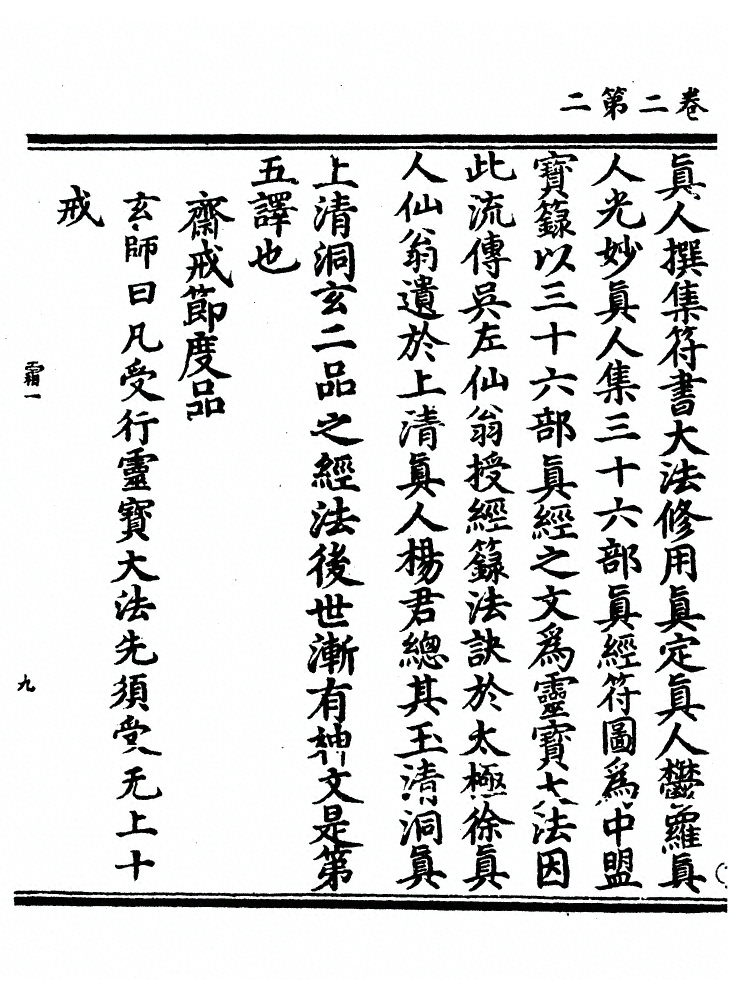 卷二第二
眞人撰集符書大法修用眞定眞人鬱羅眞
人光妙眞人集三十六部眞經符圖爲中盟
寶籙以三十六部眞經之文爲靈寶大法因
此流傳吳左仙翁授經籙法訣於太極徐眞
人仙翁遺於上清眞人楊君總其玉清洞眞
上清洞玄二品之經法後世漸有神文是第
五譯也
齋戒節度品
玄師曰凡受行靈寶大法先須受无上十
戒
霜一
九